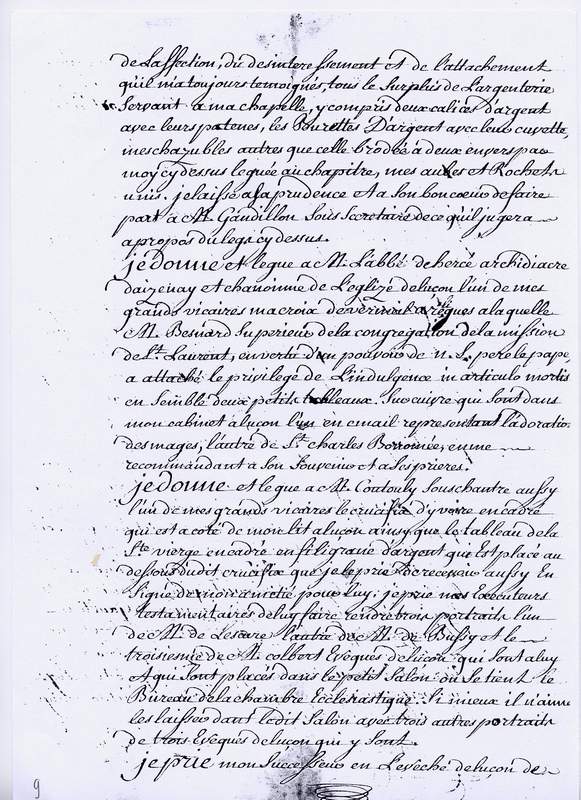 de Laffection, du desinteressement et de l'attachement
qu'il m'a toujours temoignés, tous le Surplus de L'argenterie
Servant a ma chapelle, y compris deux calices d'argent
avec leurs patenes, les Burettes D'argent avec leur cuvette,
mes chazubles autres que celle brodée a deux envers par
moy cydessus leguée au chapitre, mes aubes et Rochets
unis. je laisse a sa prudence et a Son bon coeur de faire
part a M. Gaudillon Sous Secretaire de ce qu'il jugera
apropos du legs cy dessus.
je donne et legue a M. L'abbé de hercé archidiacre
daizenay et chanoinne de L'eglize de luçon l'un de mes
grands vicaires ma croix de vermeil a la quelle
M. Besnard Superieur de la congregation de la mission
de St. Laurent, en vertu d'un pouvoir de n. S. pere le pape,
a attaché le privilege de L'indulgence in articulo mortis
en Semble deux petits tableaux Sur cuivre qui Sont dans
mon cabinet a luçon l'un en email representant l'adoratio.
des mages, l'autre de St. charles Borromée, en me
recommandant a Son Souvenir et a Ses prieres.
je donne et legue a M. Coutouly Souschantre aussy
l'un de mes grands vicaires le crucifix d'yvoire encadré
qui est a coté de mon lit a luçon ainsy que le tableau de la
Ste vierge encadré en filigrane d'argent qui Est placé au
dessous dudit crucifix que je le prie de recevoir aussy En
Signe de mon amitié pour luy; je prie mes Executeurs
testamentaires de luy faire rendre trois portraits l'un
de M. de Lescure l'autre de M. de Bussy et le
troisiesme de M. colbert Eveques de luçon qui Sont a luy
Et qui Sont placés dans le petit Salon où Se tient le
Bureau de la chambre Ecclesiastique. Si mieux il n'aime
les laisser dans ledit Salon avec trois autres portraits
de trois Eveques de luçon qui y Sont.
je prie mon Successeur en L'eveché de luçon de
9